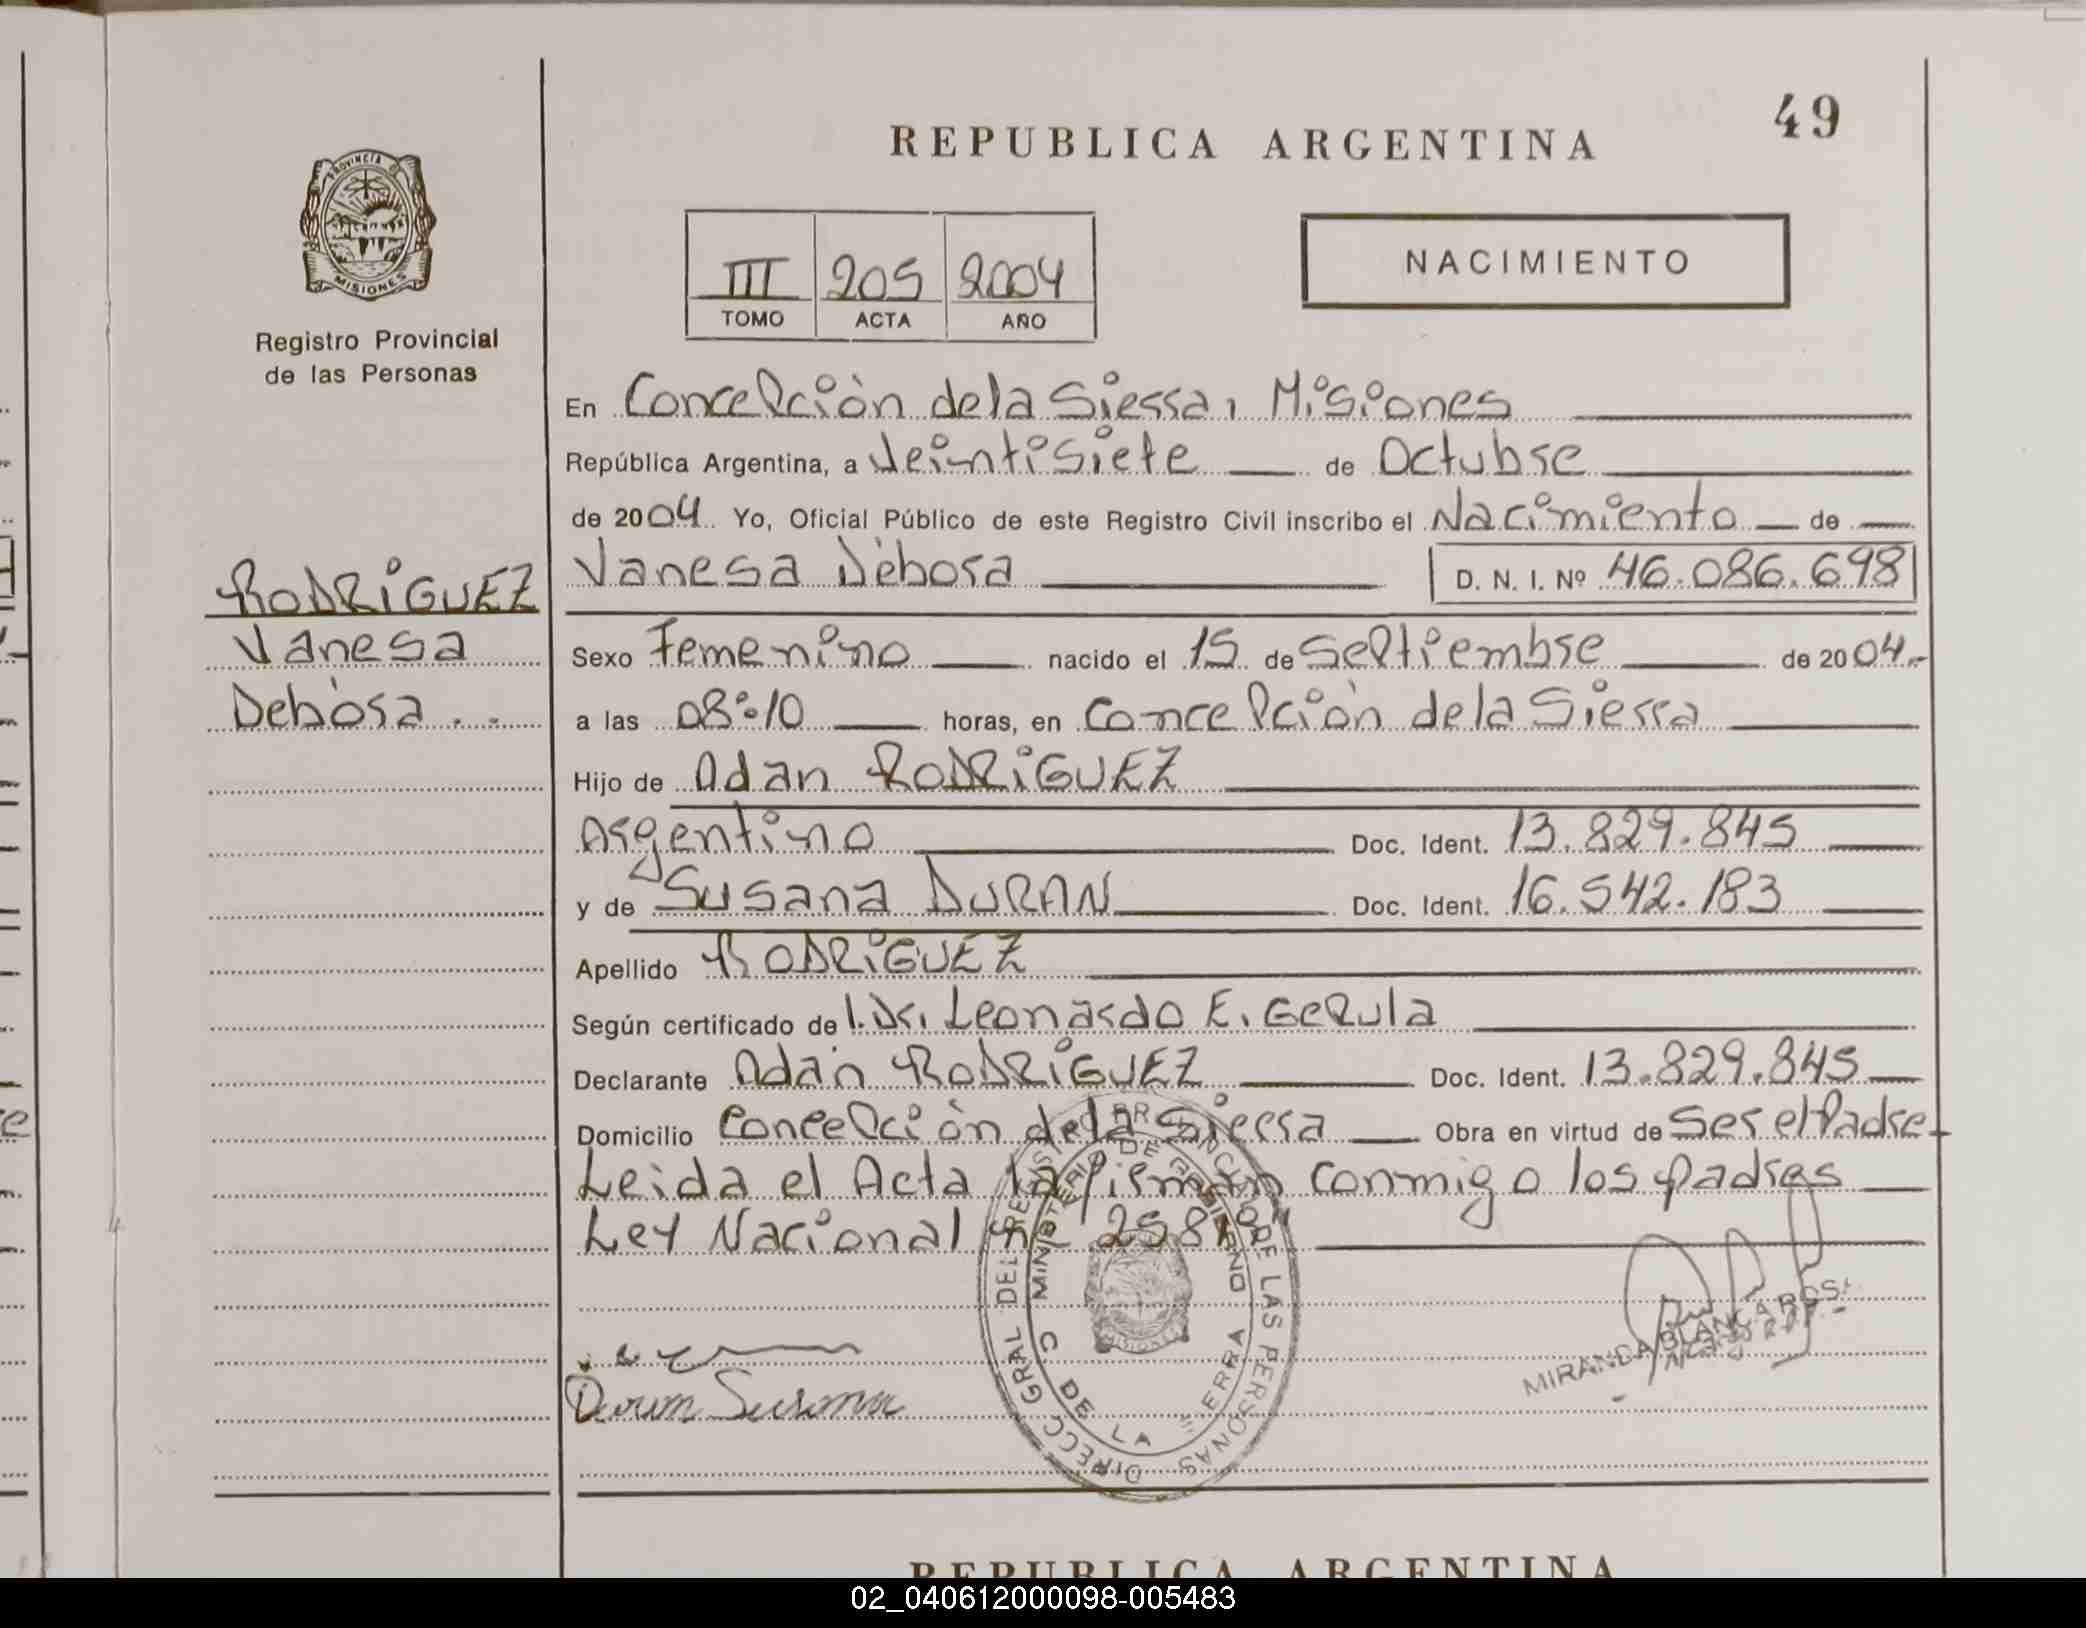 49
REPUBLICA ARGENTINA
PROVINCIA DE
MISIONES
Registro Provincial
de las Personas
III 205 2004
TOMO ACTA AÑO
NACIMIENTO
En Concepción de la Sierra, Misiones
República Argentina, a Veintisiete de Octubre
de 2004. Yo, Oficial Público de este Registro Civil inscribo el Nacimiento de
Vanesa Débora D. N. I. Nº 46.086.698
RODRIGUEZ
Vanesa
Debóra
Sexo Femenino nacido el 15 de Septiembre de 2004.-
a las 08:10 horas, en Concepción de la Sierra
Hijo de Adan RODRIGUEZ
Argentino Doc. Ident. 13.829.845
y de Susana DURAN Doc. Ident. 16.542.183
Apellido RODRIGUEZ
Según certificado de l. Dr. Leonardo E. Gepula
Declarante Adán RODRIGUEZ Doc. Ident. 13.829.845
Domicilio Concepción de la Sierra Obra en virtud de Ser el Padre
Leida el Acta la firman conmigo los padres
Ley Nacional
DIRECC GRAL DEL REGIST PROVINCIAL DE LAS PERSONAS
MINISTERIO DE GOBIERNO
C DE LA SIERRA
MIRANDA BLANCA ROSA
Duran Susana
REPUBLICA ARGENTINA
02_040612000098-005483